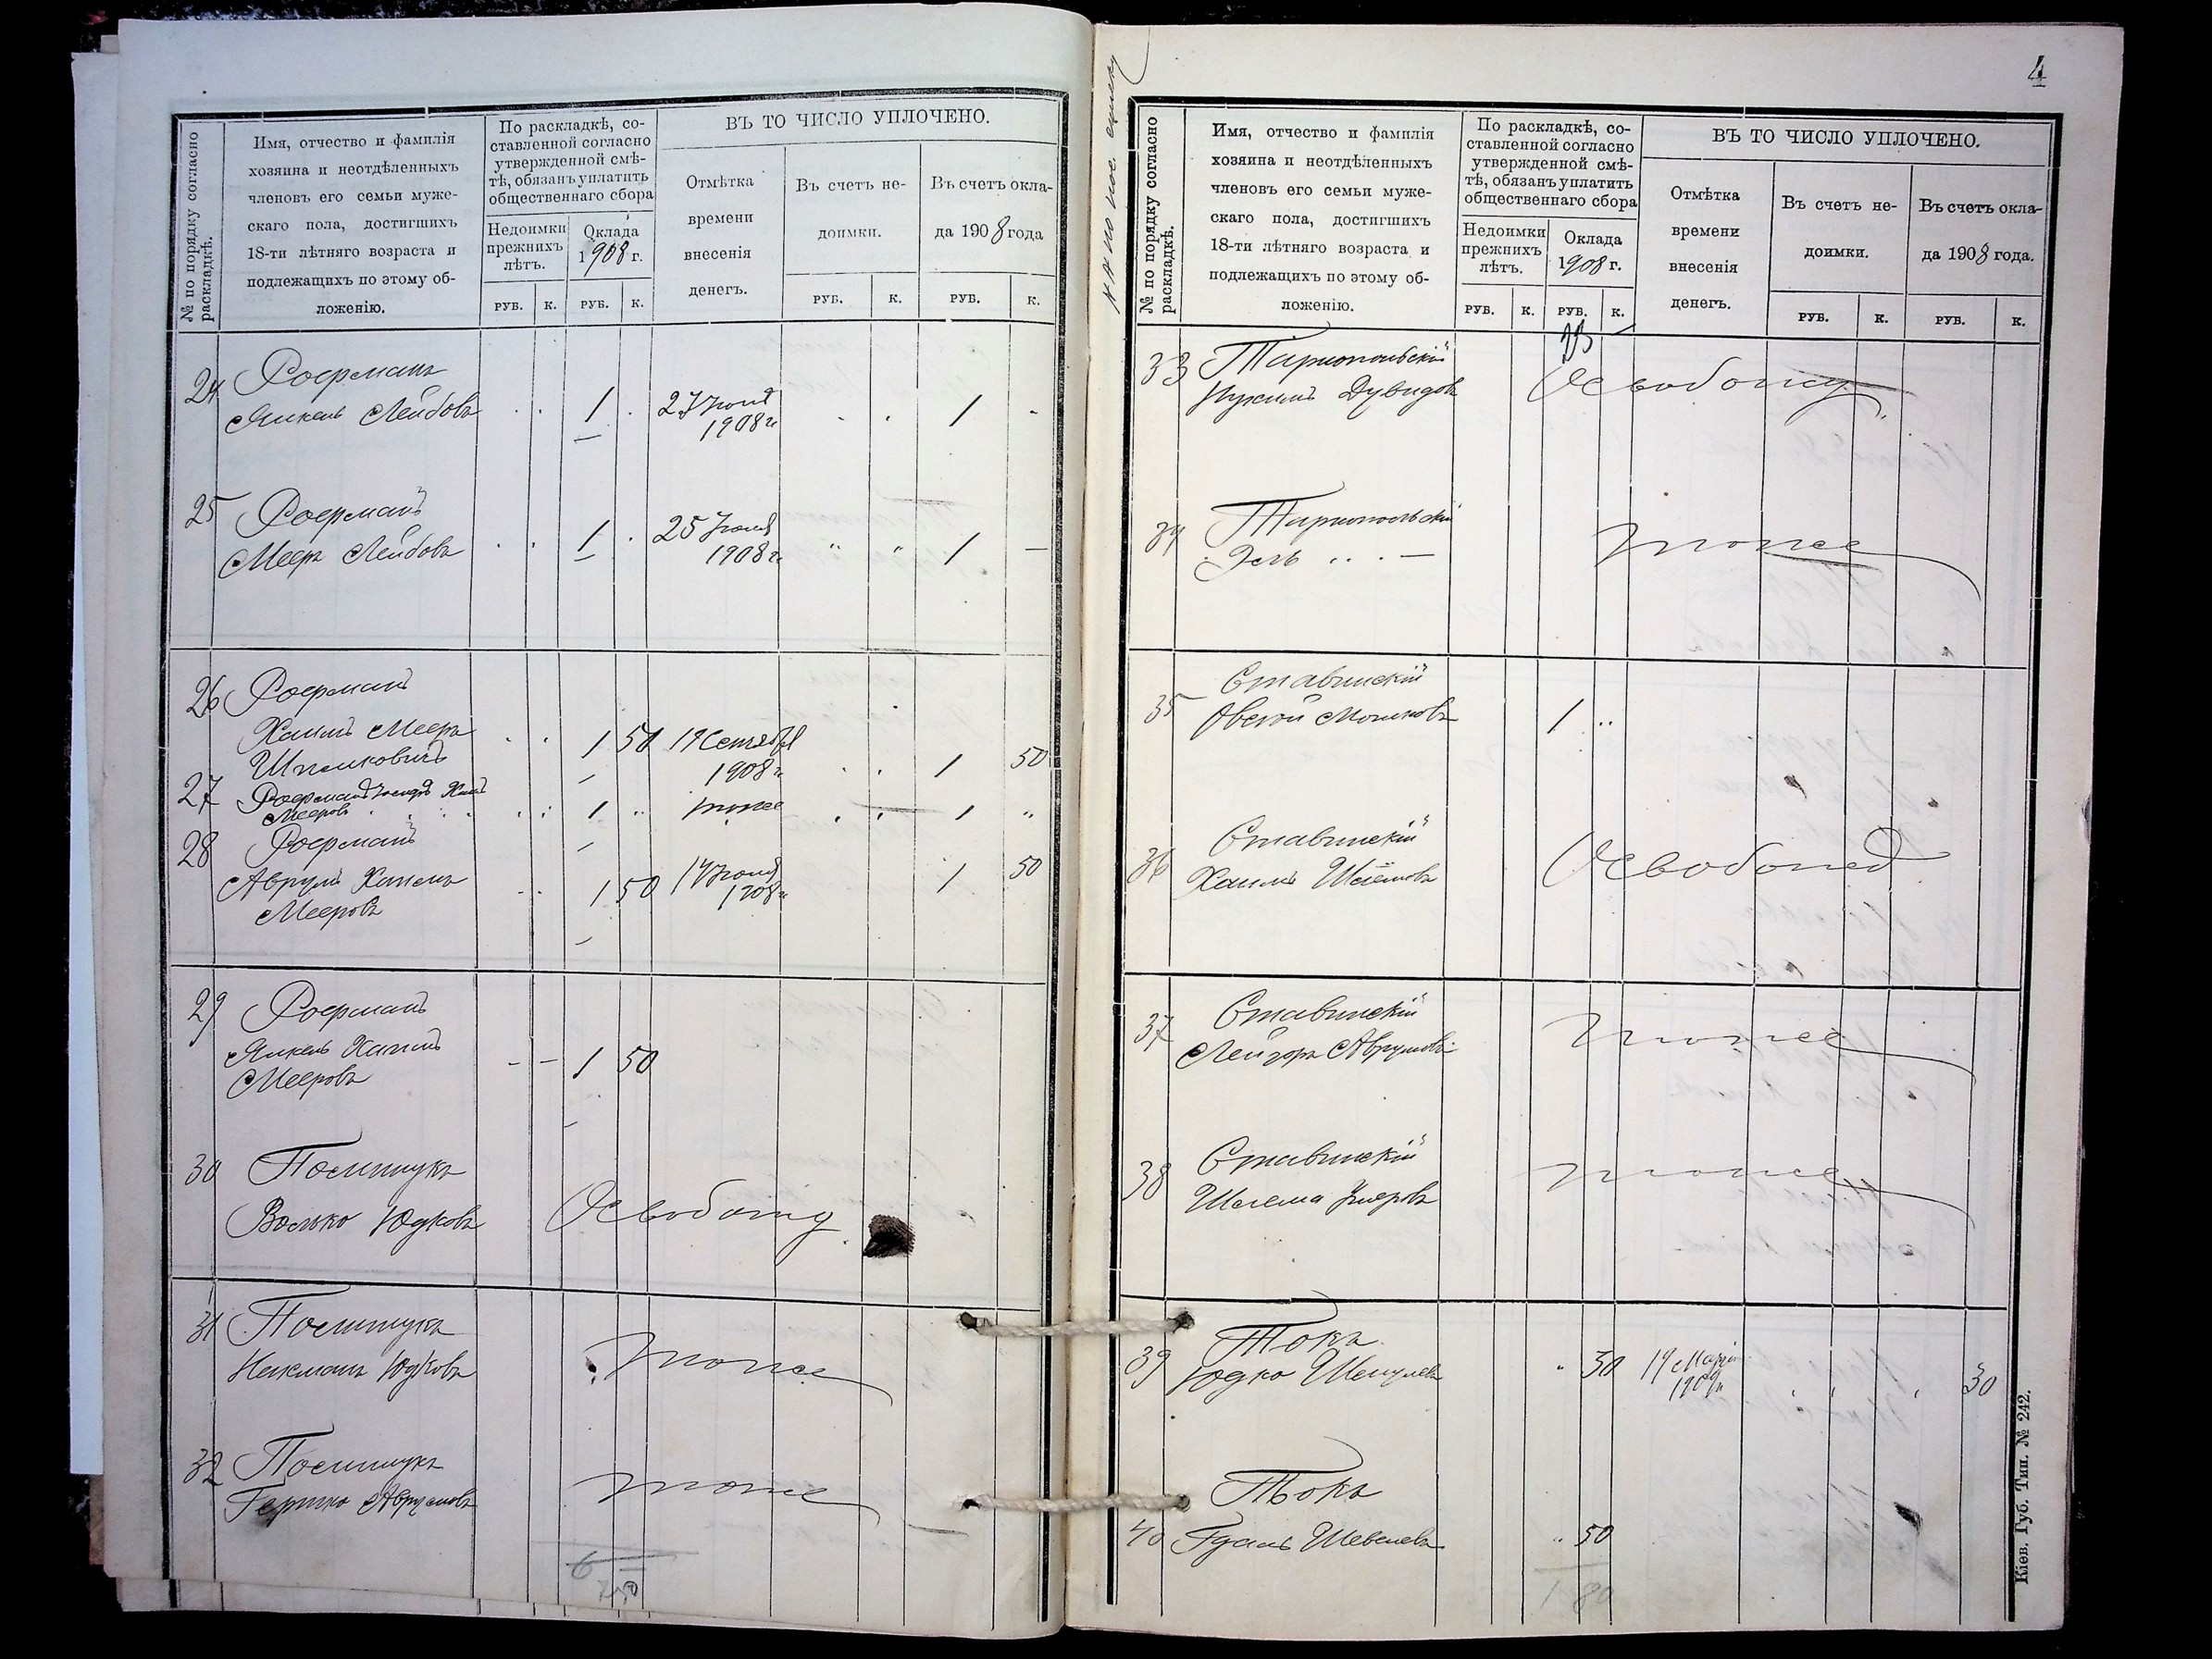 № по порядку согласно раскладкѣ.
Имя, отчество и фамилія
хозяина и неотдѣленныхъ
членовъ его семьи муже-
скаго пола, достигшихъ
18-ти лѣтняго возраста и
подлежащихъ по этому об-
ложенію.
По раскладкѣ, со-
ставленной согласно
утвержденной смѣ-
тѣ, обязанъ уплатить
общественнаго сбора
Недоимки
прежнихъ
лѣтъ.
Оклада
1908 г.
РУБ. К. РУБ. К.
ВЪ ТО ЧИСЛО УПЛОЧЕНО.
Отмѣтка
времени
внесенія
денегъ.
Въ счетъ не-
доимки.
РУБ. К.
Въ счетъ окла-
да 1908 года
РУБ. К.
24 Роерманъ
Янкель Лейбовъ 1 27 Іюня 1908 г. 1 -
25 Роерманъ
Мееръ Лейбовъ 1 25 Іюня 1908 г. " " 1 —
26 Роерманъ
Хаимъ Мееръ 1 50 19 Сентября 1908 г. 1 50
27 Роерманъ
Мееровъ 1 " тоже 1 "
28 Роерманъ
Аврумъ 1 50 1908 г. 1 50
Мееровъ
29 Роерманъ
Янкель Хаимъ
Мееровъ - - 1 50
30 Полищукъ
Волько Юдковъ Освобожд.
31 Полищукъ
Нахманъ Юдковъ тоже
32 Полищукъ
Гершко Аврумовъ тоже
6
4
№ по порядку согласно раскладкѣ.
Имя, отчество и фамилія
хозяина и неотдѣленныхъ
членовъ его семьи муже-
скаго пола, достигшихъ
18-ти лѣтняго возраста и
подлежащихъ по этому об-
ложенію.
По раскладкѣ, со-
ставленной согласно
утвержденной смѣ-
тѣ, обязанъ уплатить
общественнаго сбора
Недоимки
прежнихъ
лѣтъ.
Оклада
1908 г.
РУБ. К. РУБ. К.
ВЪ ТО ЧИСЛО УПЛОЧЕНО.
Отмѣтка
времени
внесенія
денегъ.
Въ счетъ не-
доимки.
РУБ. К.
Въ счетъ окла-
да 1908 года.
РУБ. К.
33 Тарнопольскій
Нухимъ Дувидовъ Освобожд.
34 Тарнопольскій
" " — тоже
35 Ставинскій
Овсей Мошковъ 1 "
36 Ставинскій
Хаимъ Шлемовъ Освобожд
37 Ставинскій
Лейзоръ Аврумовъ тоже
38 Ставинскій
Шлема тоже
39 Токъ
Юдко " 30 19 1909 г. 30
Токъ
40 Шевелевъ " 50
1 80
Кіев. Губ. Тип. № 242.